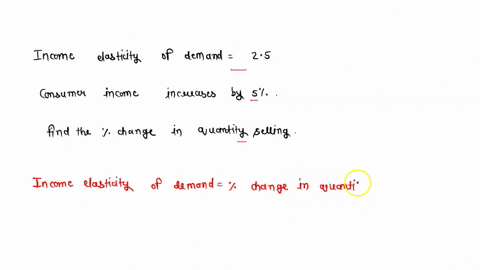 Income elasticity of demand = 2.5
Consumer income increases by 5%.
find the % change in quantity selling.
Income elasticity of demand = % change in quanti